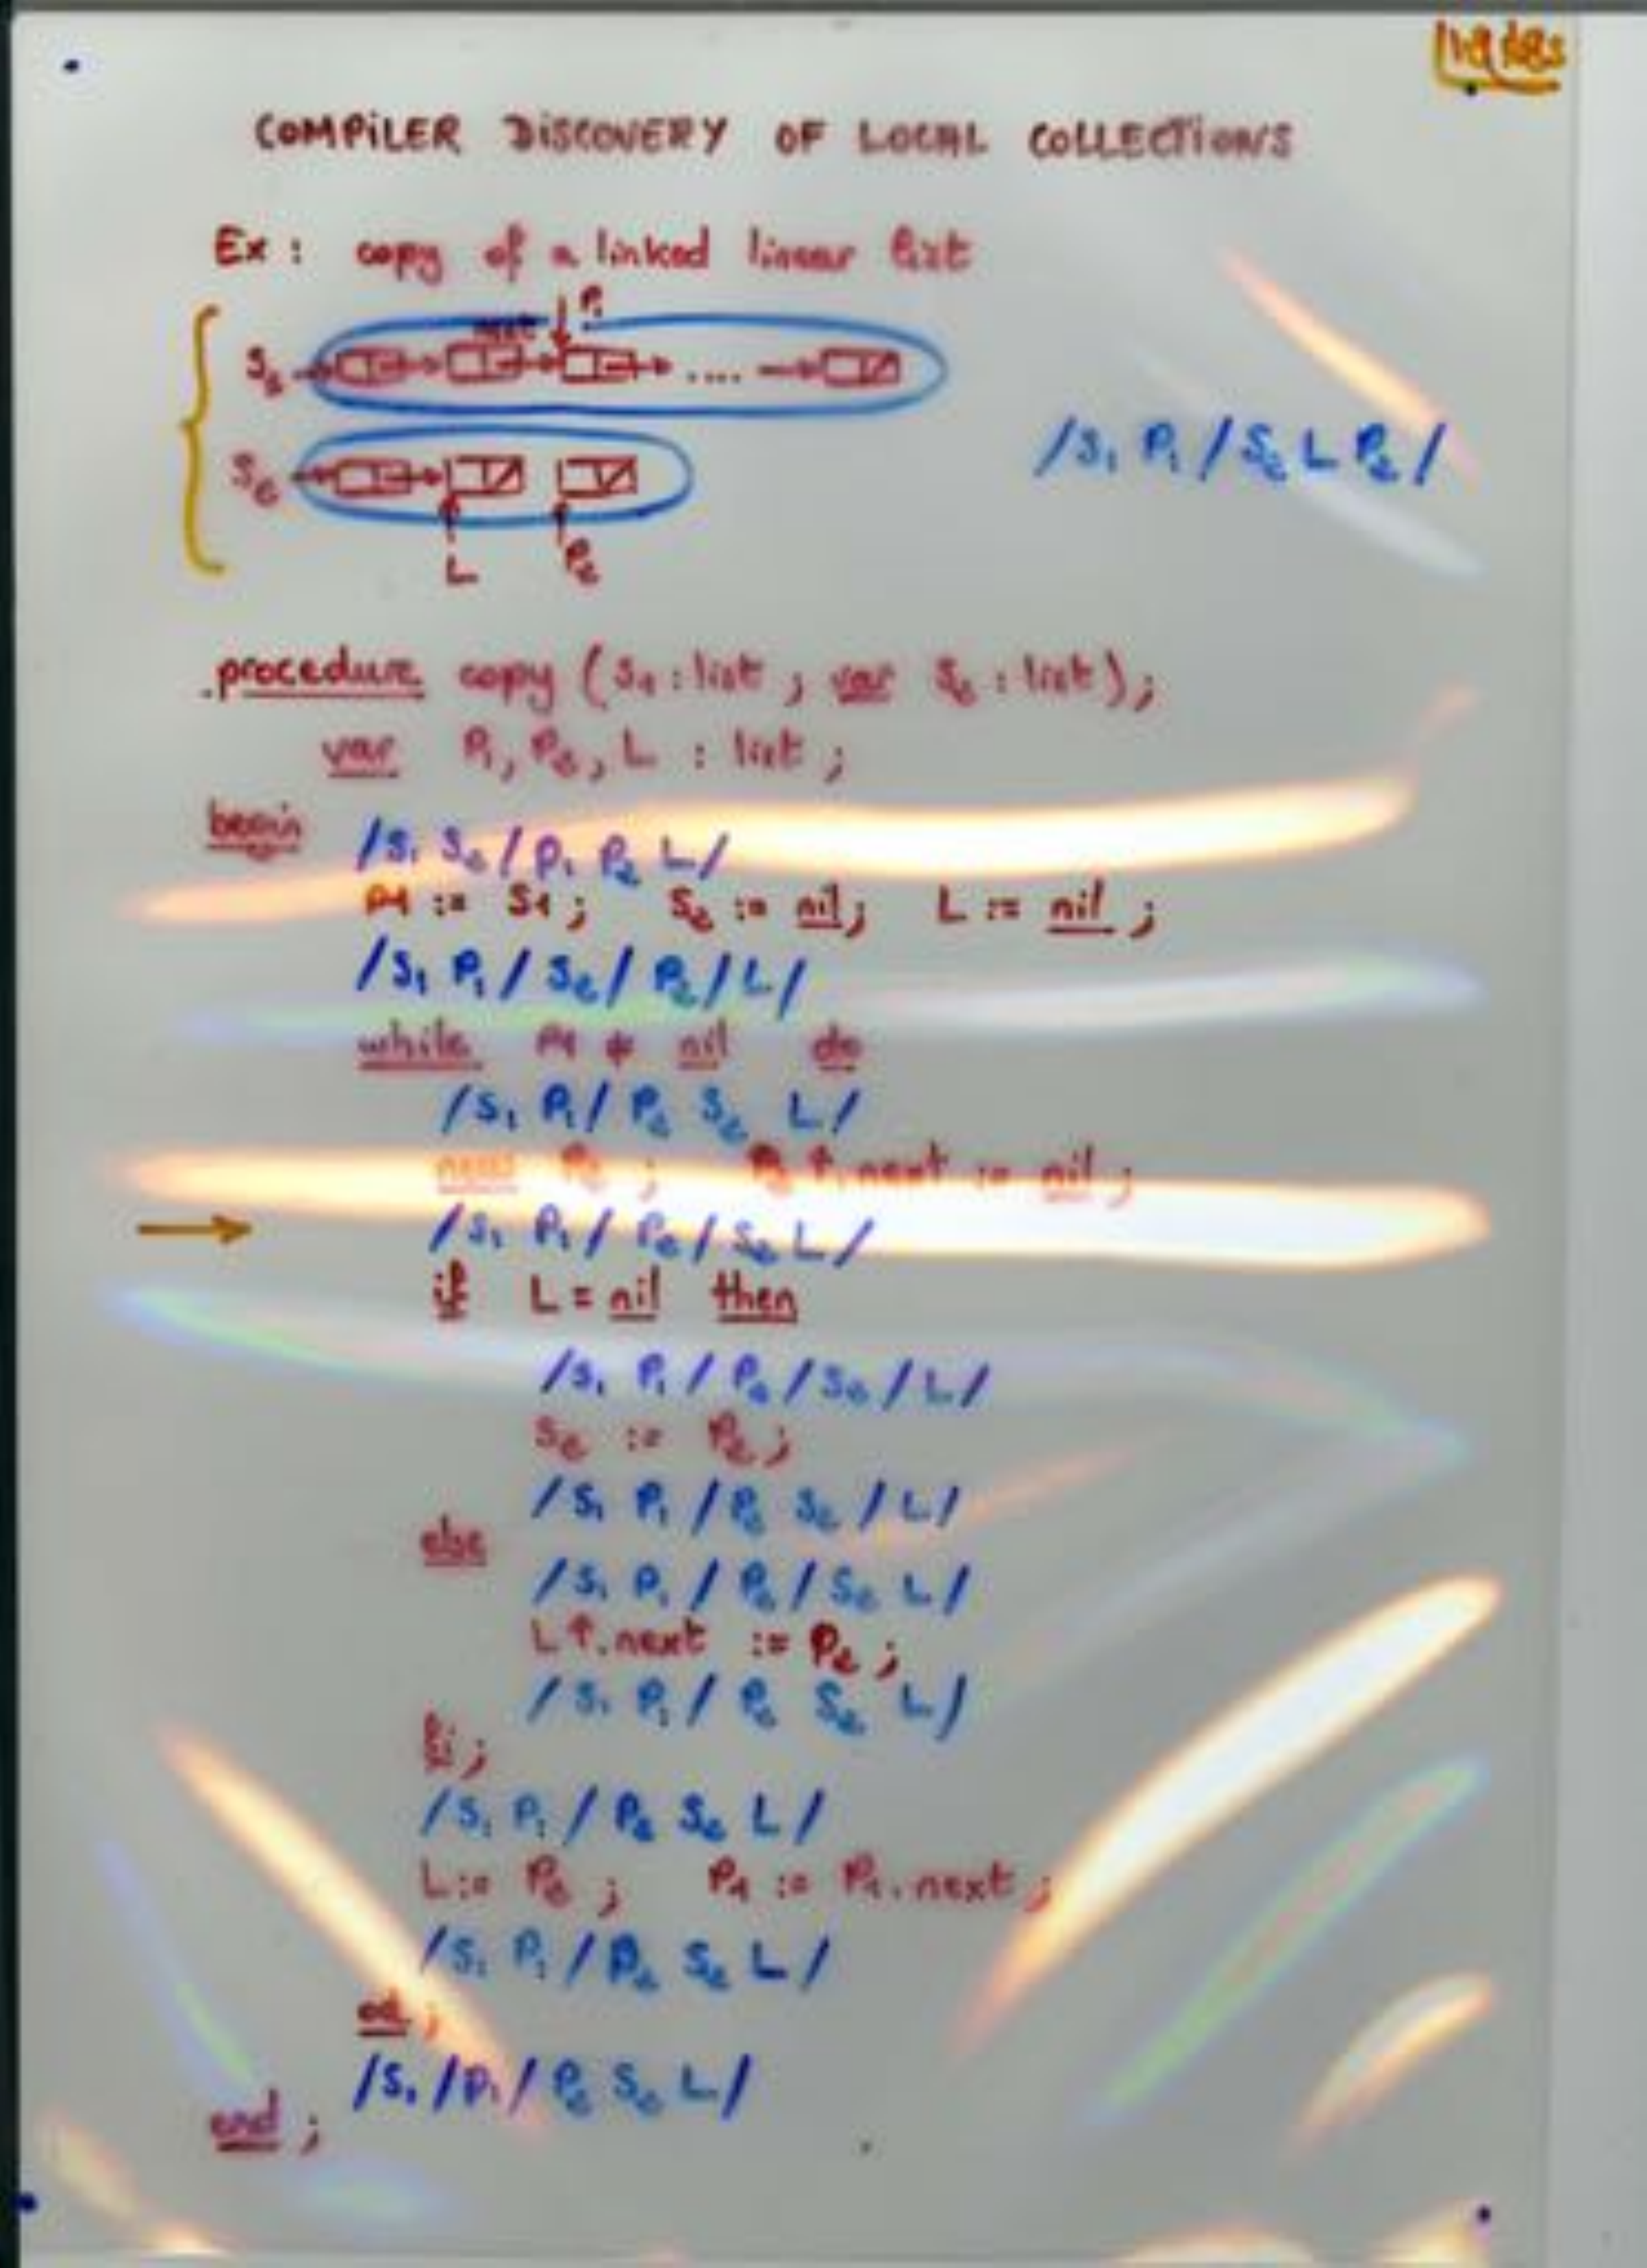 COMPILER DISCOVERY OF LOCAL COLLECTIONS
Ex : copy of a linked linear list
P1
next
S1 ....
/S1 P1 / S2 L P2 /
S2
L P2
procedure copy (S1 : list ; var S2 : list) ;
var P1, P2, L : list ;
begin
/S1 S2 / P1 P2 L /
P1 := S1 ; S2 := nil ; L := nil ;
/S1 P1 / S2 / P2 / L /
while P1 ≠ nil do
/S1 P1 / P2 S2 L /
new P2 ; P2↑.next := nil ;
/S1 P1 / P2 / S2 L /
if L = nil then
/S1 P1 / P2 / S2 / L /
S2 := P2 ;
/S1 P1 / P2 S2 / L /
else
/S1 P1 / P2 / S2 L /
L↑.next := P2 ;
/S1 P1 / P2 S2 L /
fi ;
/S1 P1 / P2 S2 L /
L := P2 ; P1 := P1.next ;
/S1 P1 / P2 S2 L /
od ;
/S1 / P1 / P2 S2 L /
end ;